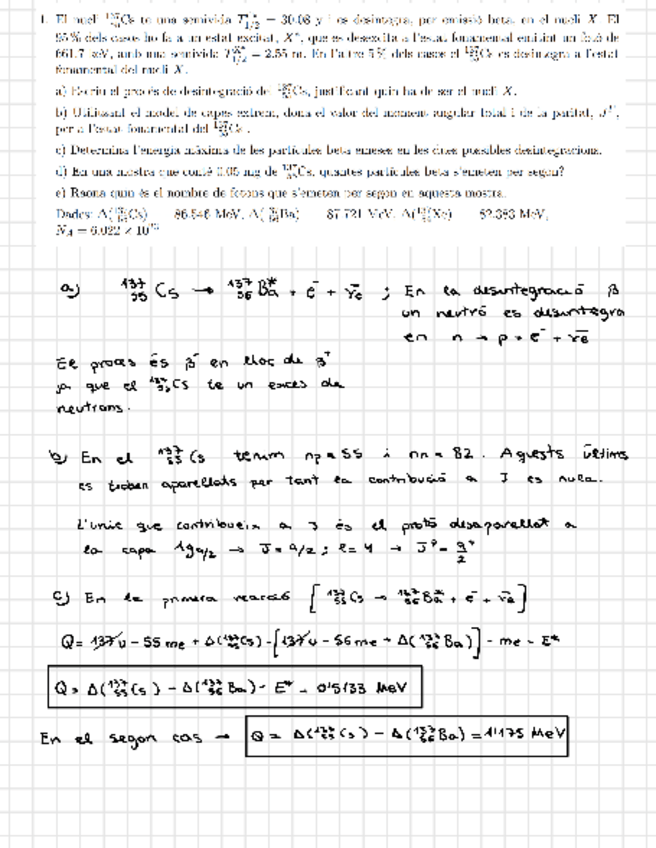 1. El nucli ¹³⁷₅₅Cs té una semivida T₁/₂ = 30.08 y i es desintegra, per emissió beta, en el nucli X. El
95% dels casos ho fa a un estat excitat, X*, que es desexcita a l'estat fonamental emitint un fotó de
661.7 keV, amb una semivida T₁/₂ = 2.55 m. En l'altre 5% dels casos el ¹³⁷₅₅Cs es desintegra a l'estat
fonamental del nucli X.
a) Escriu el procés de desintegració del ¹³⁷₅₅Cs, justificant quin ha de ser el nucli X.
b) Utilitzant el model de capes extrem, dona el valor del moment angular total i de la paritat, Jᴾ,
per a l'estat fonamental del ¹³⁷₅₅Cs.
c) Determina l'energia màxima de les partícules beta emeses en les dues possibles desintegracions.
d) En una mostra que conté 0.05 mg de ¹³⁷₅₅Cs, quantes partícules beta s'emeten per segon?
e) Raona quin és el nombre de fotons que s'emeten per segon en aquesta mostra.
Dades: Δ(Cs) 86.546 MeV, Δ(Ba) 87.721 MeV, Δ(Xe) 82.383 MeV,
N_A = 6.022 × 10²³
a) ¹³⁷₅₅Cs → ¹³⁷₅₆Ba* + e⁻ + ν̄e ; En la desintegració β
un neutró es desintegra
en n → p + e⁻ + ν̄e
El procés és β⁻ en lloc de β⁺
ja que el ¹³⁷₅₅Cs té un excés de
neutrons.
b) En el ¹³⁷₅₅Cs tenim np = 55 i nn = 82. Aquests últims
es troben aparellats per tant la contribució a J es nula.
L'únic que contribueix a J és el protó desaparellat a
la capa 1g₉/₂ → J = 9/2 ; l = 4 → Jᴾ = 9/2⁺
c) En la primera reacció [¹³⁷₅₅Cs → ¹³⁷₅₆Ba* + e⁻ + ν̄e]
Q = 137u - 55me + Δ(¹³⁷₅₅Cs) - [137u - 56me + Δ(¹³⁷₅₆Ba)] - me - E*
Q = Δ(¹³⁷₅₅Cs) - Δ(¹³⁷₅₆Ba) - E* = 0'5133 MeV
En el segon cas → Q = Δ(¹³⁷₅₅Cs) - Δ(¹³⁷₅₆Ba) = 1'175 MeV